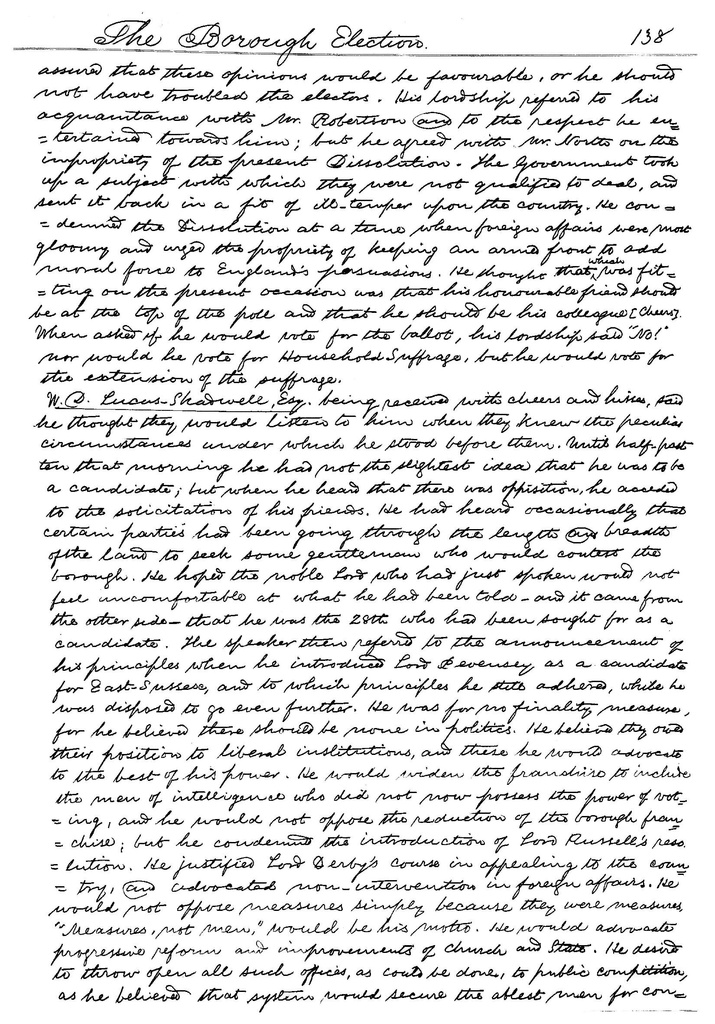 The Borough Election. 138
assured that these opinions would be favourable, or he should
not have troubled the electors. His lordship referred to his
acquaintance with Mr. Robertson and to the respect he en=
=tertained towards him; but he agreed with Mr. North on the
impropriety of the present Dissolution. The Government took
up a subject with which they were not qualified to deal, and
sent it back in a fit of ill-temper upon the country. He con=
=demned the Dissolution at a time when foreign affairs were most
gloomy and urged the propriety of keeping an armed front to add
moral force to England's persuasions. He thought that, which was fit=
=ting on the present occasion was that his honourable friend should
be at the top of the poll and that he should be his colleague [Cheers].
When asked if he would vote for the ballot, his lordship said "No!"
nor would he vote for Household Suffrage, but he would vote for
the extension of the suffrage.
W. D. Lucas-Shadwell, Esq. being received with cheers and hisses, said
he thought they would listen to him when they knew the peculiar
circumstances under which he stood before them. Until half-past
ten that morning he had not the slightest idea that he was to be
a candidate; but when he heard that there was opposition, he acceded
to the solicitation of his friends. He had heard occasionally that
certain parties had been going through the length and breadth
of the land to seek some gentleman who would contest the
borough. He hoped the noble Lord who had just spoken would not
feel uncomfortable at what he had been told – and it came from
the other side – that he was the 28th who had been sought for as a
candidate. The speaker then referred to the announcement of
his principles when he introduced Lord Pevensey as a candidate
for East-Sussex, and to which principles he still adhered, while he
was disposed to go even further. He was for no finality measure,
for he believed there should be none in politics. He believed they owed
their position to liberal institutions, and these he would advocate
to the best of his power. He would widen the franchise to include
the men of intelligence who did not now possess the power of vot=
=ing, and he would not oppose the reduction of the borough fran=
=chise; but he condemned the introduction of Lord Russell's reso
=lution. He justified Lord Derby's course in appealing to the coun=
=try, and advocated non-intervention in foreign affairs. He
would not oppose measures simply because they were measures,
"Measures, not men," would be his motto. He would advocate
progressive reform and improvements of Church and State. He desired
to throw open all such offices, as could be done, to public competition,
as he believed that system would secure the ablest men for con=